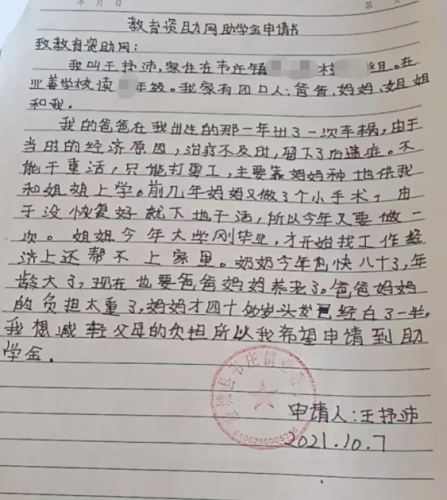 教育资助网助学金申请书
致教育资助网：
我叫王抒沛，家住在韦庄镇 村 组。在
业善学校读 年级。我家有四口人：爸爸、妈妈、姐姐
和我。
我的爸爸在我出生的那一年出了一次车祸，由于
当时的经济原因，治疗不及时，留下了后遗症。不
能干重活，只能打零工，主要靠妈妈种地供我
和姐姐上学。前几年妈妈又做了个小手术，由
于没恢复好就下地干活，所以今年又要做一
次。姐姐今年大学刚毕业，才开始找工作经
济上还帮不上家里。奶奶今年也快八十了，年
龄大了，现在也要爸爸妈妈养老了。爸爸妈妈
的负担太重了，妈妈才四十几岁头发已经白了一半。
我想减轻父母的负担所以我希望申请到助
学金。
申请人：王抒沛
2021.10.7